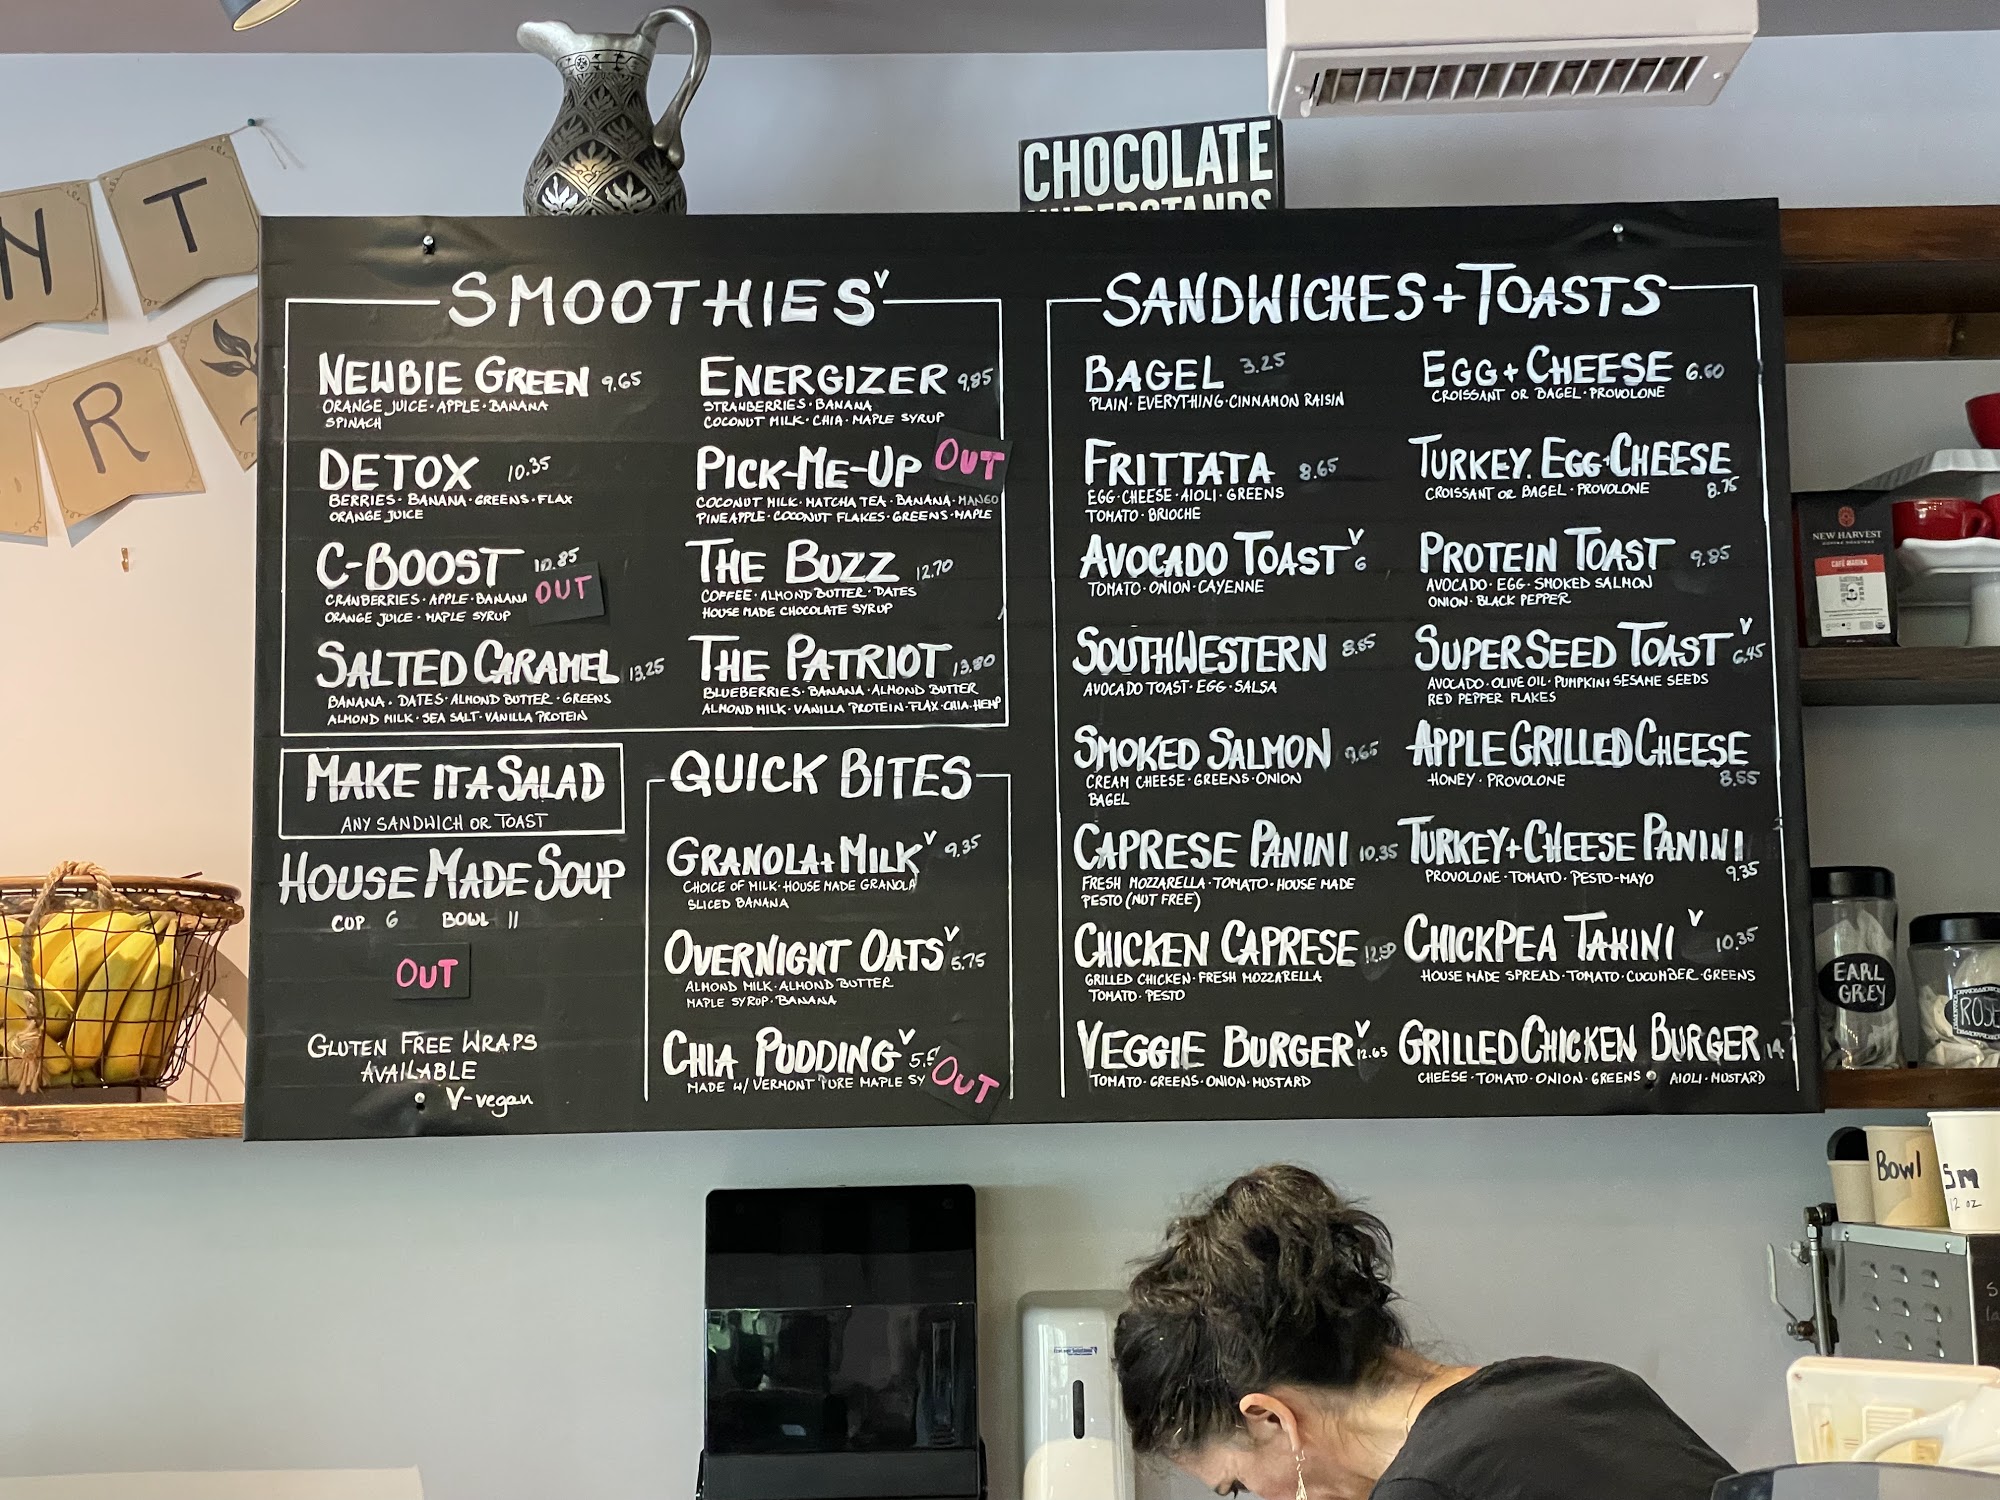 N T
R
CHOCOLATE
UNDERSTANDS
SMOOTHIES V
NEWBIE GREEN 9.65
ORANGE JUICE · APPLE · BANANA
SPINACH
DETOX 10.35
BERRIES · BANANA · GREENS · FLAX
ORANGE JUICE
C-BOOST 10.85
CRANBERRIES · APPLE · BANANA
ORANGE JUICE · MAPLE SYRUP
OUT
SALTED CARAMEL 13.25
BANANA · DATES · ALMOND BUTTER · GREENS
ALMOND MILK · SEA SALT · VANILLA PROTEIN
ENERGIZER 9.85
STRAWBERRIES · BANANA
COCONUT MILK · CHIA · MAPLE SYRUP
PICK-ME-UP OUT
COCONUT MILK · MATCHA TEA · BANANA · MANGO
PINEAPPLE · COCONUT FLAKES · GREENS · MAPLE
THE BUZZ 12.70
COFFEE · ALMOND BUTTER · DATES
HOUSE MADE CHOCOLATE SYRUP
THE PATRIOT 13.80
BLUEBERRIES · BANANA · ALMOND BUTTER
ALMOND MILK · VANILLA PROTEIN · FLAX · CHIA · HEMP
MAKE IT A SALAD
ANY SANDWICH OR TOAST
HOUSE MADE SOUP
CUP 6 BOWL 11
OUT
GLUTEN FREE WRAPS
AVAILABLE
V-vegan
QUICK BITES
GRANOLA + MILK V 9.35
CHOICE OF MILK · HOUSE MADE GRANOLA
SLICED BANANA
OVERNIGHT OATS V 5.75
ALMOND MILK · ALMOND BUTTER
MAPLE SYRUP · BANANA
CHIA PUDDING V
MADE W/ VERMONT PURE MAPLE SY
OUT
SANDWICHES + TOASTS
BAGEL 3.25
PLAIN · EVERYTHING · CINNAMON RAISIN
FRITTATA 8.65
EGG · CHEESE · AIOLI · GREENS
TOMATO · BRIOCHE
AVOCADO TOAST V 6
TOMATO · ONION · CAYENNE
SOUTHWESTERN 8.85
AVOCADO TOAST · EGG · SALSA
SMOKED SALMON 9.65
CREAM CHEESE · GREENS · ONION
BAGEL
CAPRESE PANINI 10.35
FRESH MOZZARELLA · TOMATO · HOUSE MADE
PESTO (NUT FREE)
CHICKEN CAPRESE 12.50
GRILLED CHICKEN · FRESH MOZZARELLA
TOMATO · PESTO
VEGGIE BURGER V 12.65
TOMATO · GREENS · ONION · MUSTARD
EGG + CHEESE 6.60
CROISSANT OR BAGEL · PROVOLONE
TURKEY. EGG · CHEESE
CROISSANT OR BAGEL · PROVOLONE 8.75
PROTEIN TOAST 9.85
AVOCADO · EGG · SMOKED SALMON
ONION · BLACK PEPPER
SUPER SEED TOAST V 6.45
AVOCADO · OLIVE OIL · PUMPKIN + SESAME SEEDS
RED PEPPER FLAKES
APPLE GRILLED CHEESE
HONEY · PROVOLONE 8.55
TURKEY + CHEESE PANINI
PROVOLONE · TOMATO · PESTO-MAYO 9.35
CHICKPEA TAHINI V 10.35
HOUSE MADE SPREAD · TOMATO · CUCUMBER · GREENS
GRILLED CHICKEN BURGER 14
CHEESE · TOMATO · ONION · GREENS · AIOLI · MUSTARD
NEW HARVEST
COFFEE ROASTERS
EARL
GREY
ROSE
Bowl
Sm
12 oz